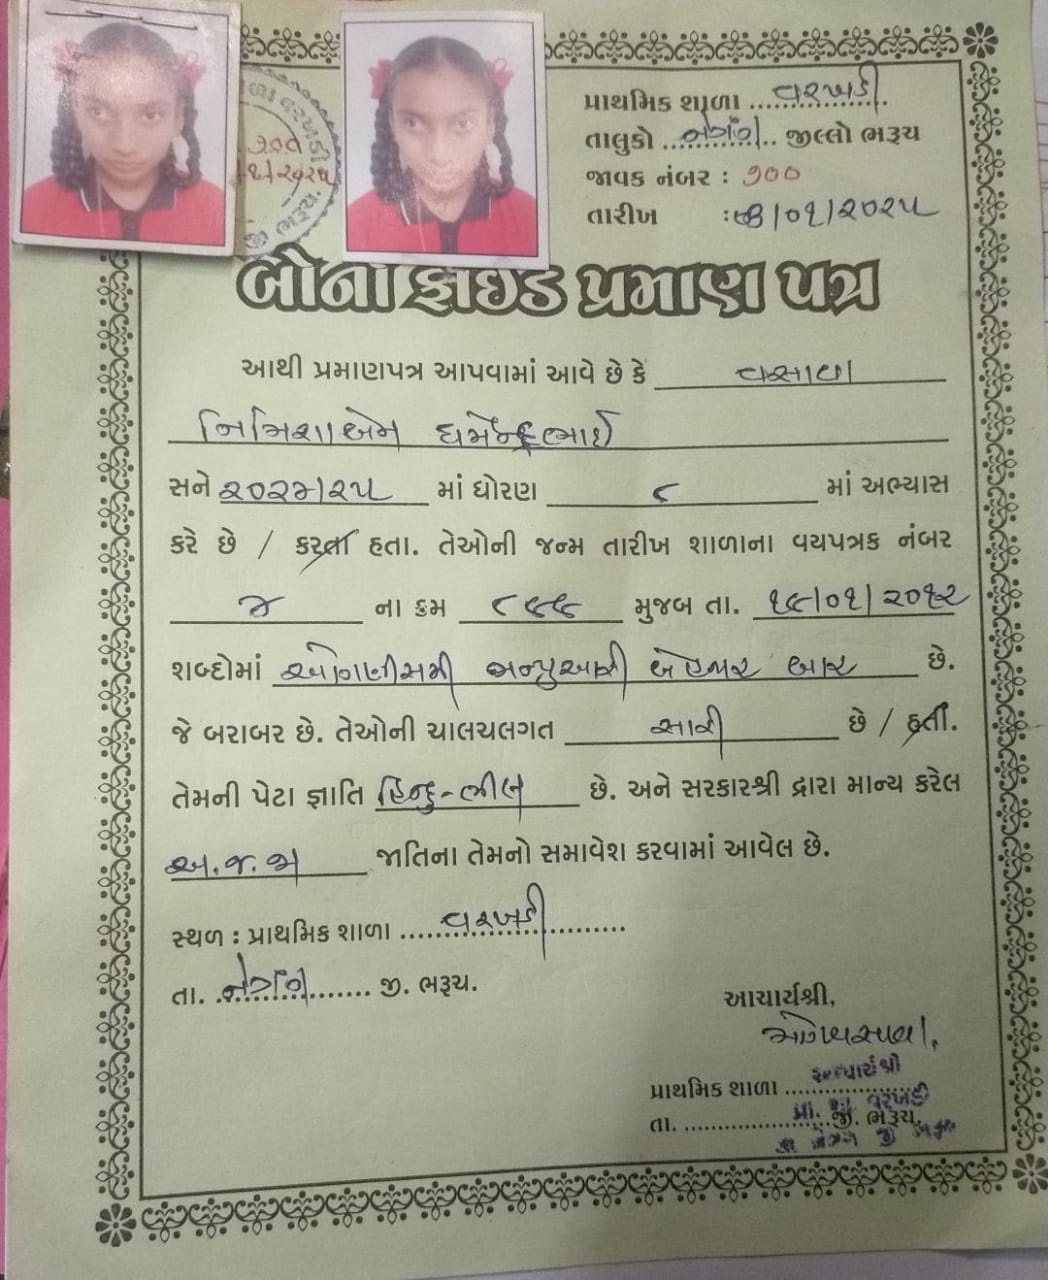 પ્રાથમિક શાળા વરખડી
તાલુકો નેત્રંગ જીલ્લો ભરૂચ
જાવક નંબર : ૧૦૦
તારીખ : /૦૧/૨૦૨૫
બોનાફાઇડ પ્રમાણ પત્ર
આથી પ્રમાણપત્ર આપવામાં આવે છે કે વસાવા
નિમિશાબેન ધર્મેન્દ્રભાઈ
સને ૨૦૨૪/૨૫ માં ધોરણ ૮ માં અભ્યાસ
કરે છે / કરતા હતા. તેઓની જન્મ તારીખ શાળાના વયપત્રક નંબર
૪ ના ક્રમ મુજબ તા. ૧૯/૦૧/૨૦૧૨
શબ્દોમાં ઓગણીસમી જાન્યુઆરી બેહજાર બાર છે.
જે બરાબર છે. તેઓની ચાલચલગત સારી છે / હતી.
તેમની પેટા જ્ઞાતિ હિન્દુ-ભીલ છે. અને સરકારશ્રી દ્વારા માન્ય કરેલ
અ.જ.જા જાતિના તેમનો સમાવેશ કરવામાં આવેલ છે.
સ્થળ : પ્રાથમિક શાળા વરખડી
તા. નેત્રંગ જી. ભરૂચ.
આચાર્યશ્રી,
પ્રાથમિક શાળા
આચાર્યશ્રી
તા. જી. ભરૂચ.
પ્રા. શા. વરખડી